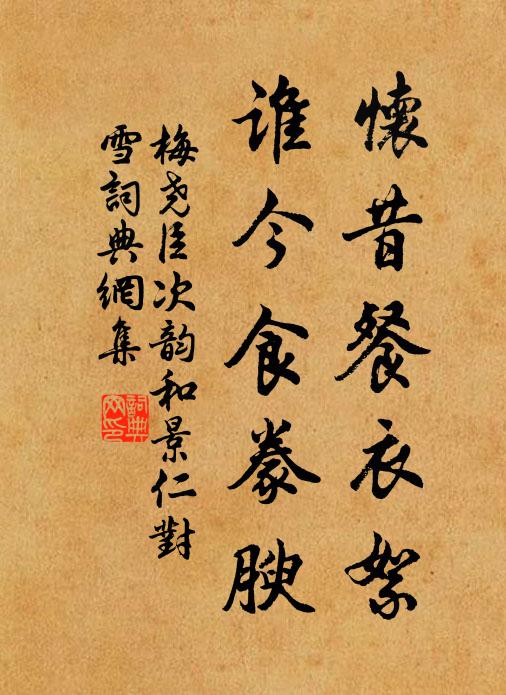 懷昔餐衣絮
誰今食豢腴
梅堯臣次韵和景仁對
雪詞典網集
詞典
网印